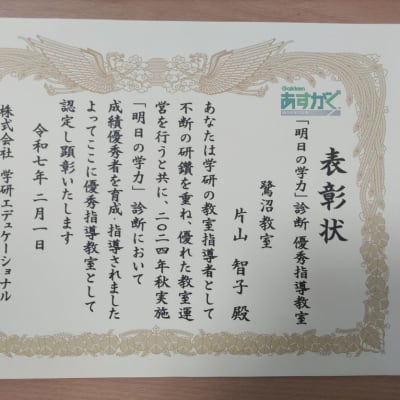 Gakken
あすがく
表彰状
「明日の学力」診断 優秀指導教室
鷺沼教室
片山 智子 殿
あなたは学研の教室指導者として
不断の研鑽を重ね、優れた教室運
営を行うと共に、二〇二四年秋実施
「明日の学力」診断において
成績優秀者を育成・指導されました
よってここに優秀指導教室として
認定し顕彰いたします
令和七年二月一日
株式会社 学研エデュケーショナル